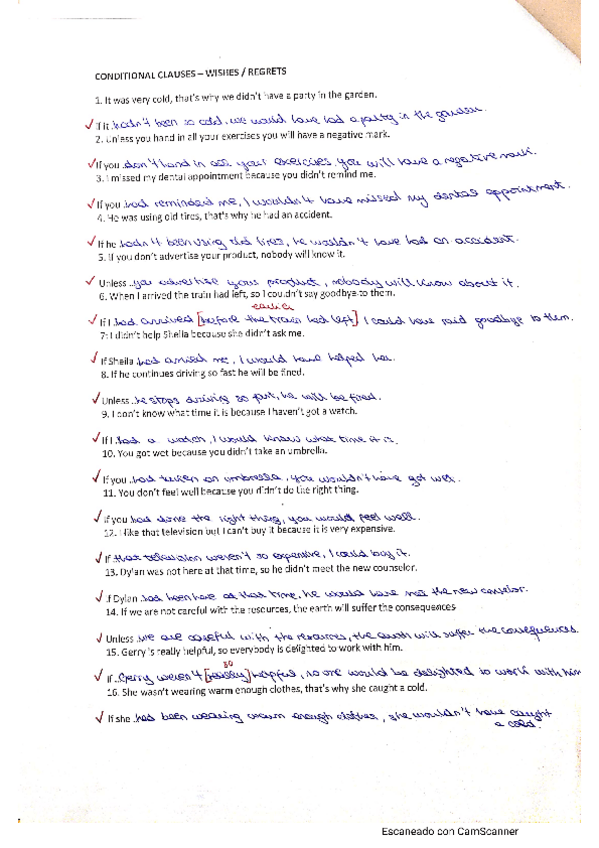 CONDITIONAL CLAUSES – WISHES / REGRETS
1. It was very cold, that's why we didn't have a party in the garden.
✓ If it hadn't been so cold, we would have had a party in the garden.
2. Unless you hand in all your exercises you will have a negative mark.
✓ If you don't hand in all your exercises you will have a negative mark.
3. I missed my dental appointment because you didn't remind me.
✓ If you had reminded me, I wouldn't have missed my dental appointment.
4. He was using old tires, that's why he had an accident.
✓ If he hadn't been using old tires, he wouldn't have had an accident.
5. If you don't advertise your product, nobody will know it.
✓ Unless you advertise your product, nobody will know about it.
6. When I arrived the train had left, so I couldn't say goodbye to them.
earlier
✓ If I had arrived [before the train had left] I could have said goodbye to them.
7. I didn't help Sheila because she didn't ask me.
✓ If Sheila had me, I would have helped her.
8. If he continues driving so fast he will be fined.
✓ Unless he stops driving so fast, he will be fined.
9. I don't know what time it is because I haven't got a watch.
✓ If I had a watch, I would know what time it is.
10. You got wet because you didn't take an umbrella.
✓ If you had taken an umbrella, you wouldn't have got wet.
11. You don't feel well because you didn't do the right thing.
✓ If you had done the right thing, you would feel well.
12. I like that television but I can't buy it because it is very expensive.
✓ If that television weren't so expensive, I could buy it.
13. Dylan was not here at that time, so he didn't meet the new counselor.
✓ If Dylan had been here at that time, he would have met the new counselor.
14. If we are not careful with the resources, the earth will suffer the consequences
✓ Unless we are careful with the resources, the earth will suffer the consequences.
15. Gerry is really helpful, so everybody is delighted to work with him.
so
✓ If Gerry weren't [really] helpful, no one would be delighted to work with him
16. She wasn't wearing warm enough clothes, that's why she caught a cold.
✓ If she had been wearing warm enough clothes, she wouldn't have caught
a cold.
Escaneado con CamScanner